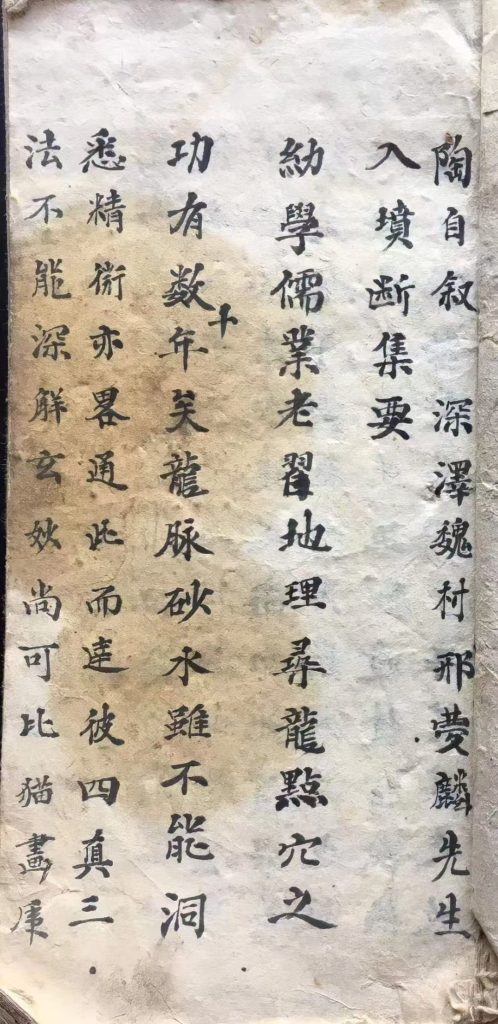 陶自叙　深澤魏村邢夢麟先生
入墳断集要
幼學儒業老習地理尋龍點穴之
功有数十年矣龍脉砂水雖不能洞
悉精術亦畧通此而達彼四真三
法不能深觧玄妙尚可比猫畫虎